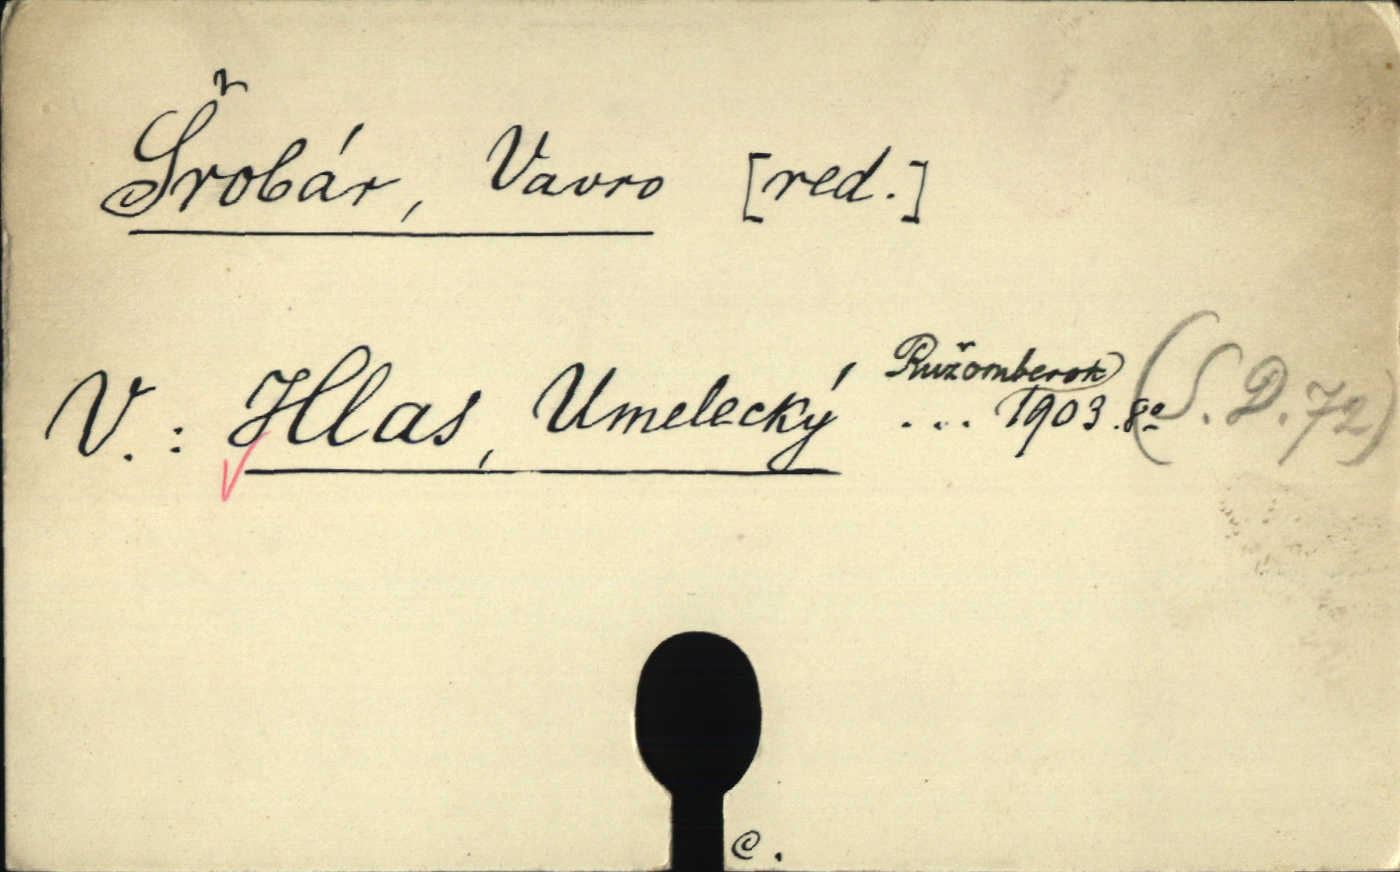 Šrobár, Vavro [red.]
V.: Hlas, Umelecký ... Ružomberok 1903. 8º (S. D. 72)
c.